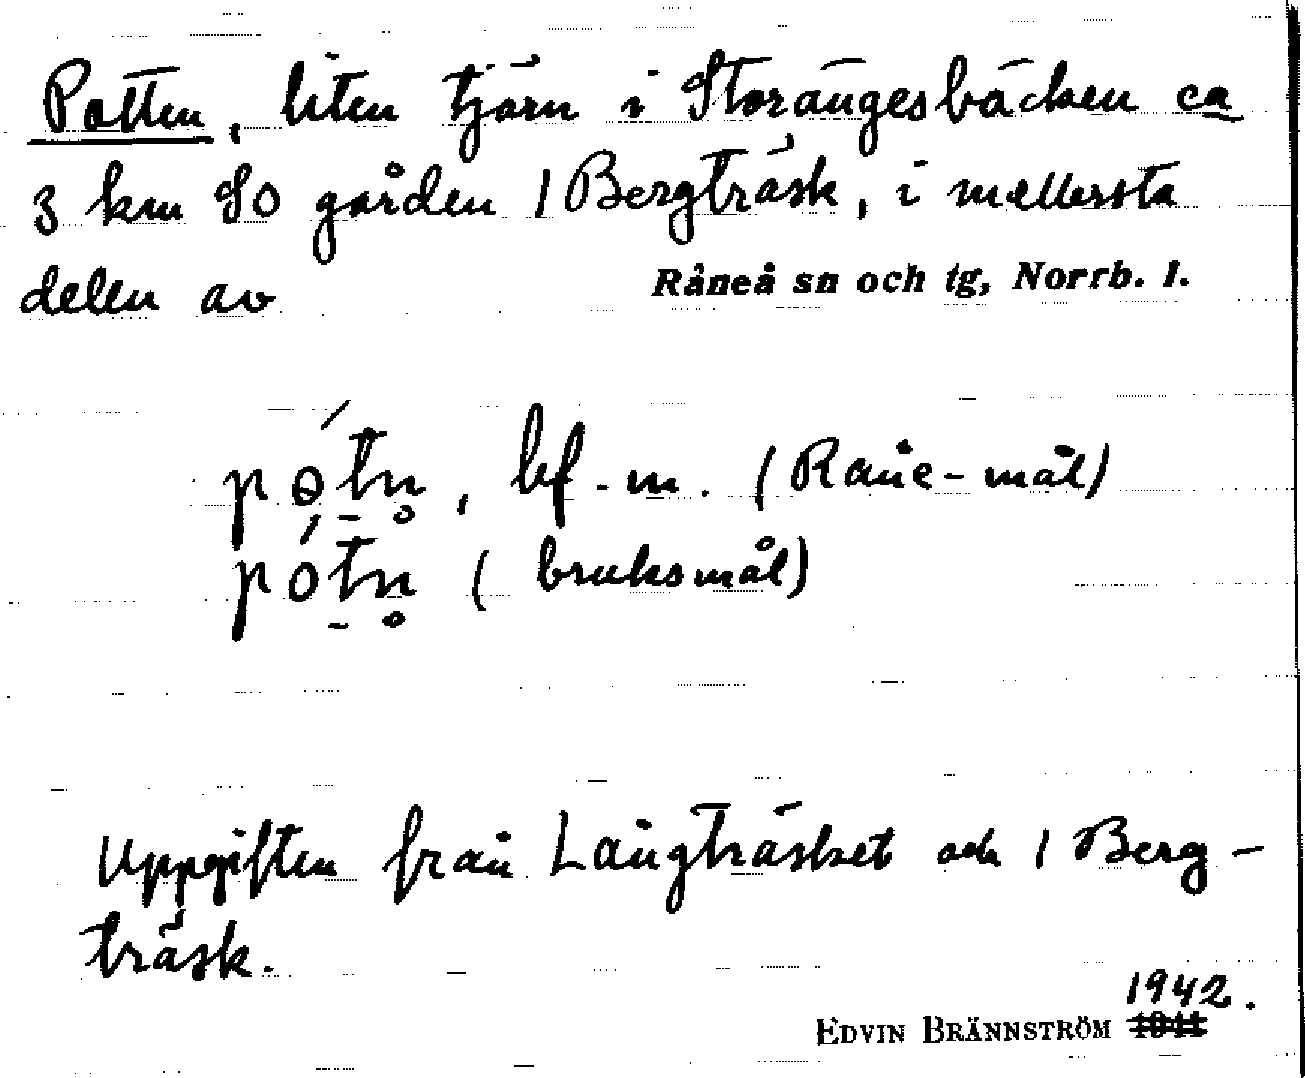 Potten, liten tjärn i Storängesbäcken ca
3 km SO gården 1 Bergträsk, i mellersta
delen av Råneå sn och tg, Norrb. l.
pö́tn̥, bf. m. (Råne-mål)
pótn̥ (bruksmål)
Uppgiften från Långträsket och 1 Berg-
träsk.
1942.
EDVIN BRÄNNSTRÖM 1941